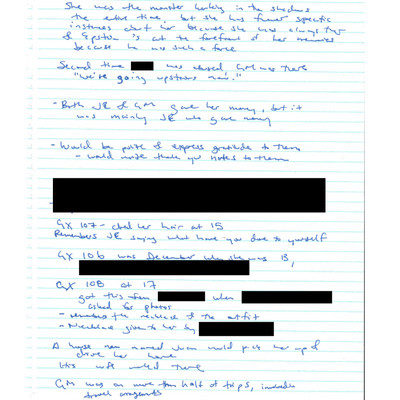 She was the monster lurking in the shadows
the entire time, but she has fewer specific
instances about her because she was always there
& Epstein is at the forefront of her memories
because he was such a force
Second time was abused GM was there
"we're going upstairs now."
- Both JE & GM gave her money, but it
was mainly JE who gave money
- Would be polite & express gratitude to them
- would write thank you notes to them
GX 107 - her hair at 15
Remembers JE saying what have you done to yourself
GX 106 was December when she was 13,
GX 108 at 17
got this from when
asked for photos
- the necklace & the outfit
- Necklace given to her by
A house man named Juan would pick her up &
drive her home
His wife worked there
GM was on more than half of trips,
travel